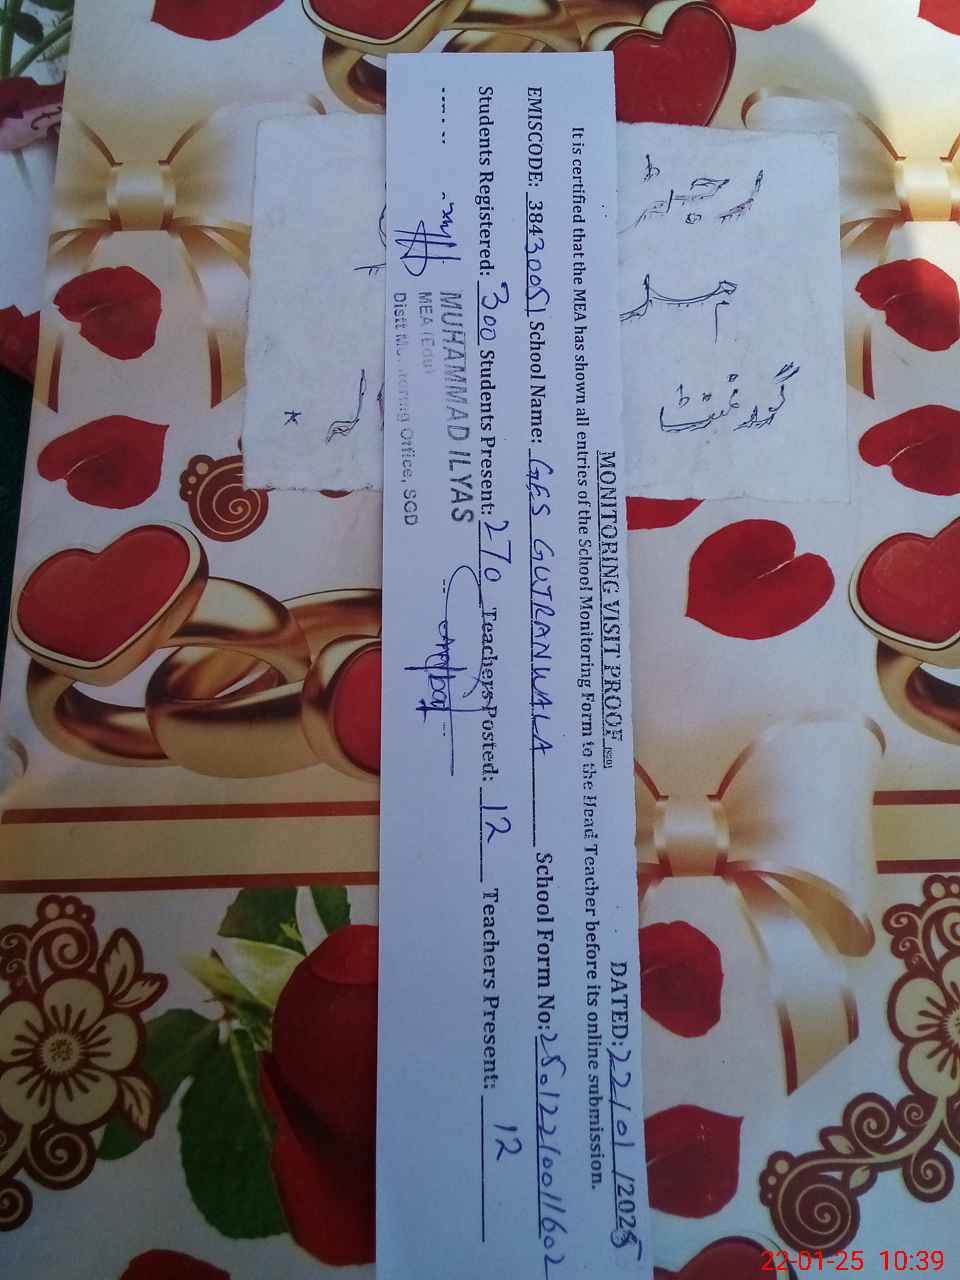 MONITORING VISIT PROOF
DATED: 22/01/2025
It is certified that the MEA has shown all entries of the School Monitoring Form to the Head Teacher before its online submission.
EMISCODE: 38430051 School Name: GES GUJRANWALA School Form No:
Students Registered: 300 Students Present: 270 Teachers Posted: 12 Teachers Present: 12
MUHAMMAD ILYAS
MEA (Edu)
Distt Monitoring Office, SGD
22-01-25 10:39